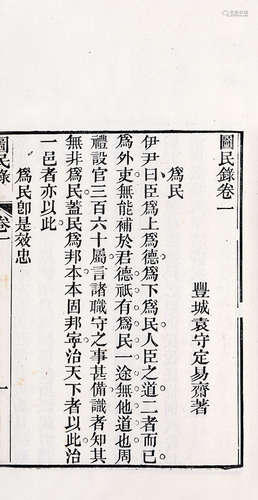 圖民錄卷一
豐城袁守定易齋著
爲民
伊尹曰臣爲上爲德爲下爲民人臣之道二者而已
爲外吏無能補於君德祇有爲民一途無他道也周
禮設官三百六十屬言諸職守之事甚備識者知其
無非爲民蓋民爲邦本本固邦寧治天下者以此治
一邑者亦以此
爲民卽是效忠
圖民錄
卷一
一